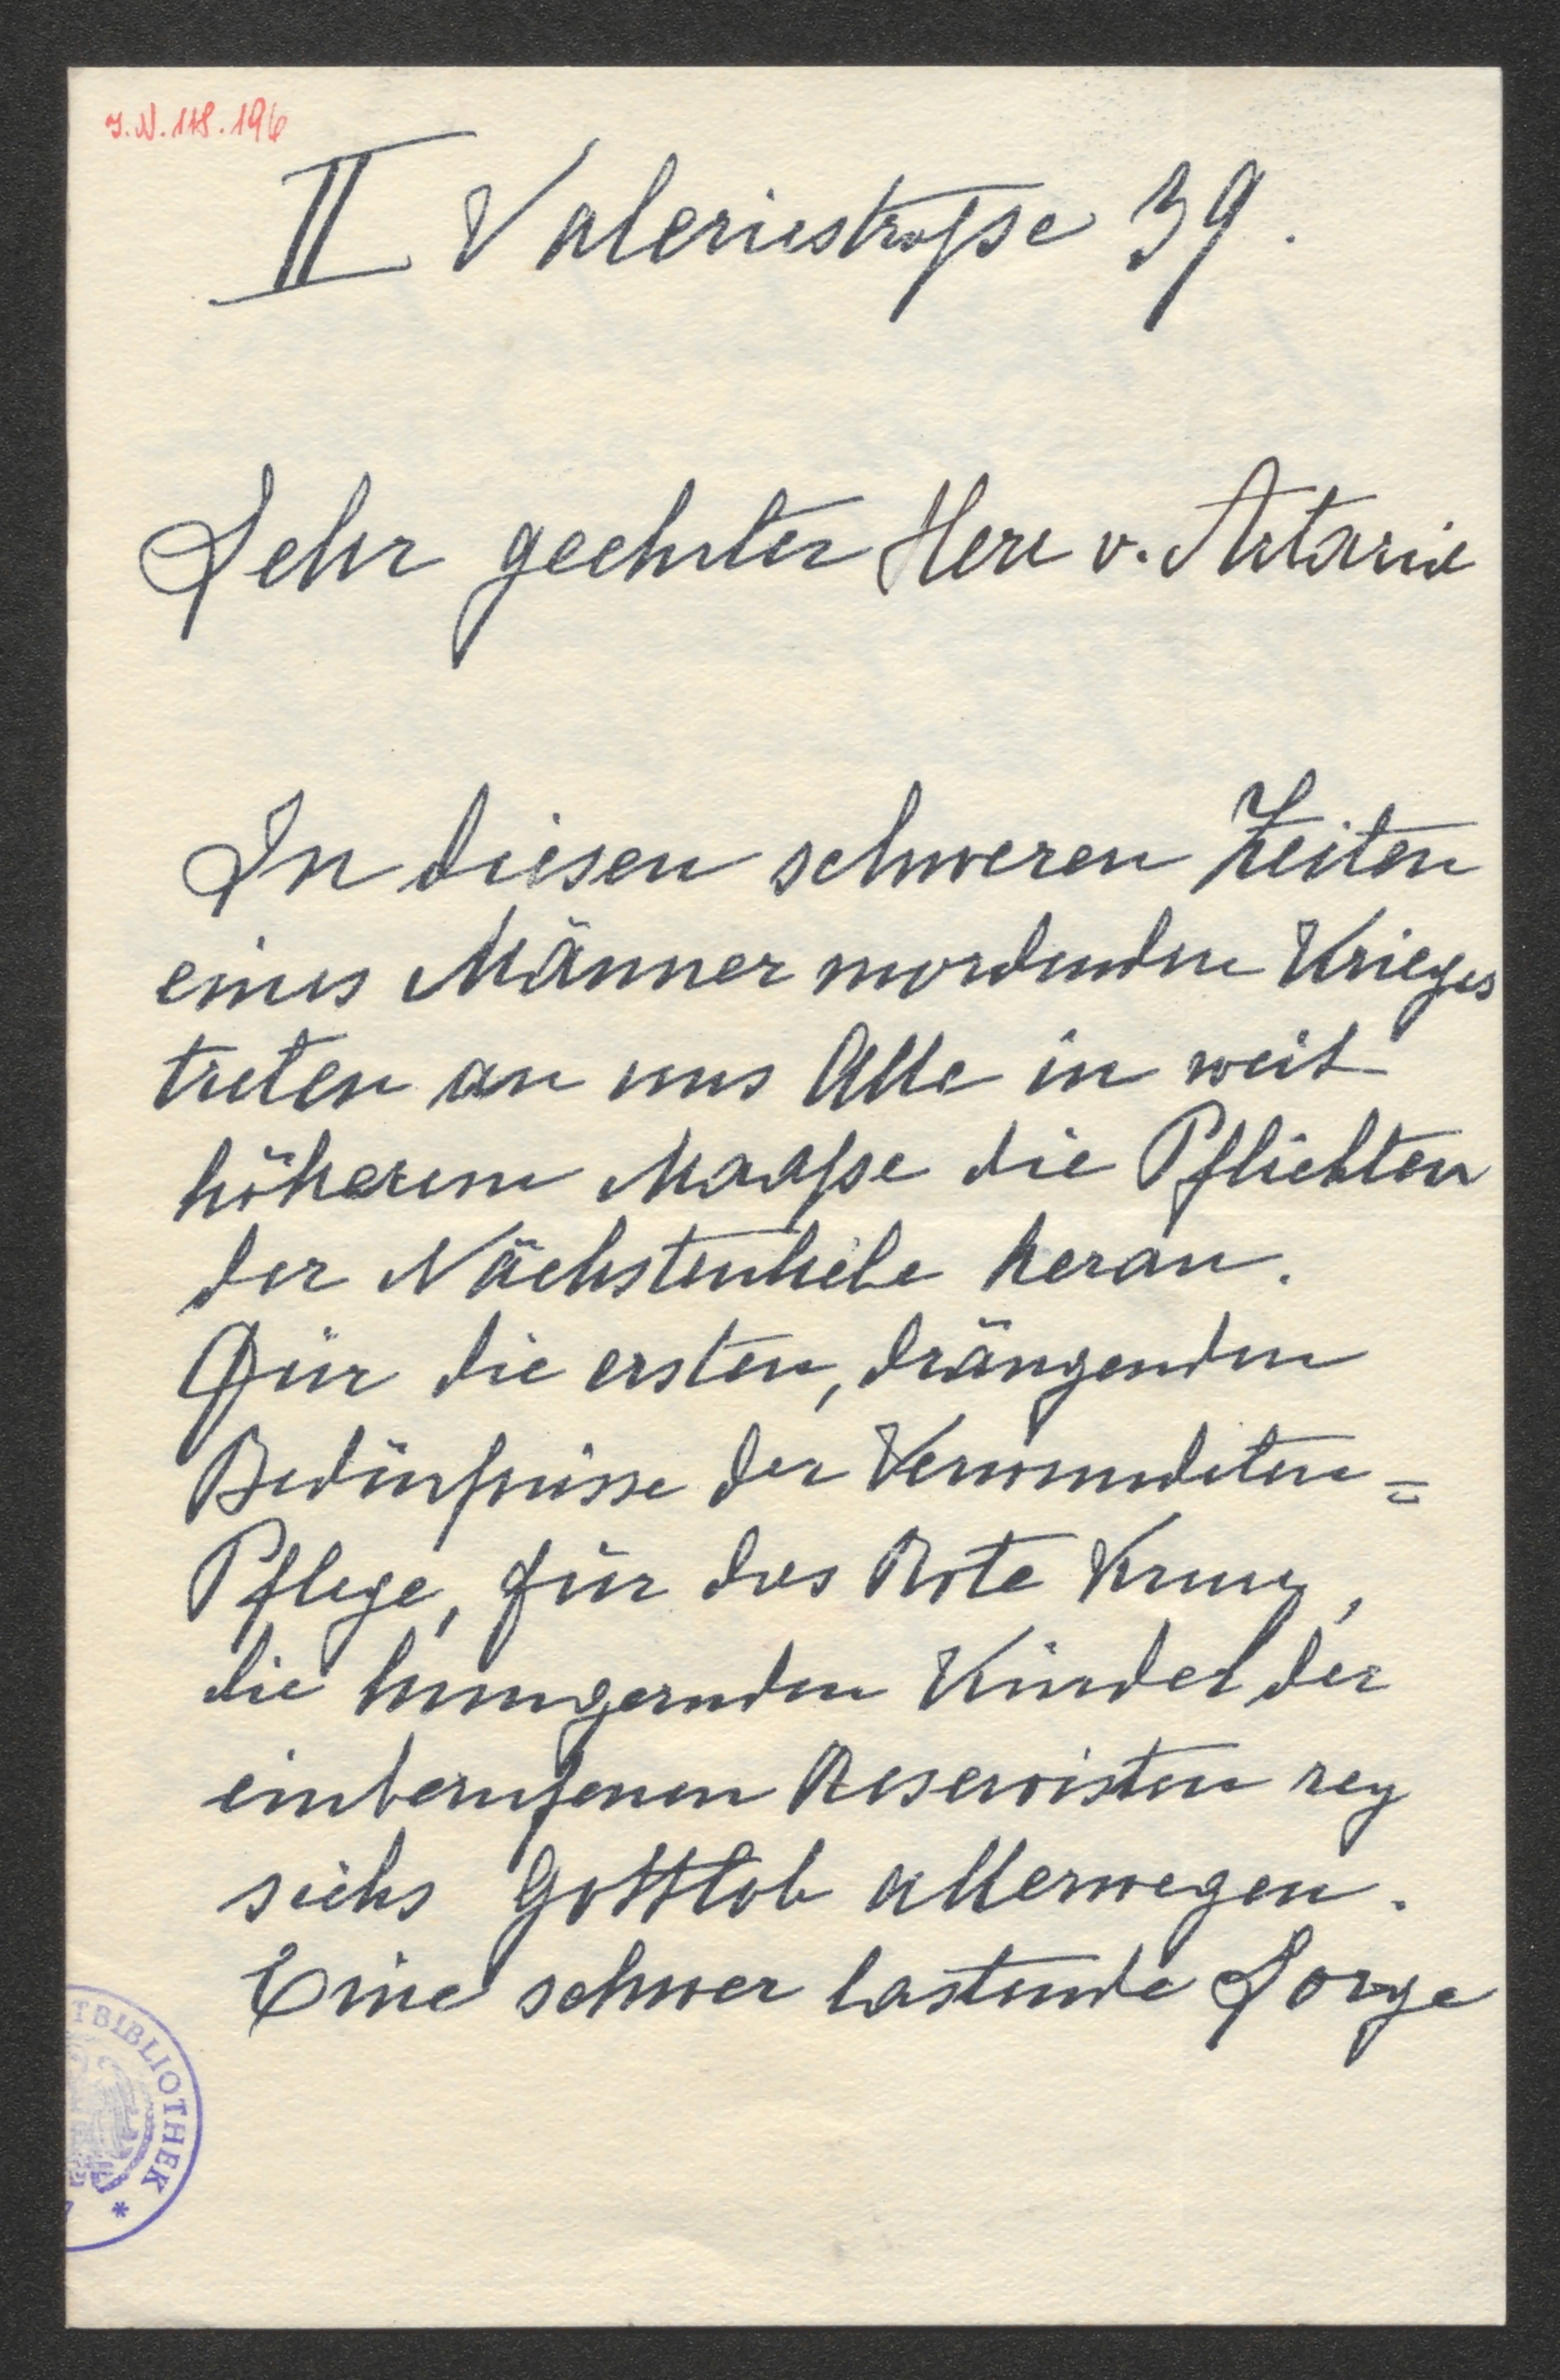 J.N. 118.196
II Valeriestraße 39.
Sehr geehrter Herr v. Artaria
In diesen schweren Zeiten
eines Männer mordenden Krieges
treten an uns Alle in weit
höherem Maaße die Pflichten
der Nächstenliebe heran.
Für die ersten, drängenden
Bedürfnisse der Verwundeten=
Pflege, für das Rote Kreuz,
die hungernden Kinder der
einberufenen Reservisten reg
sichs Gottlob allerwegen.
Eine schwer lastende Sorge
TBIBLIOTHEK *